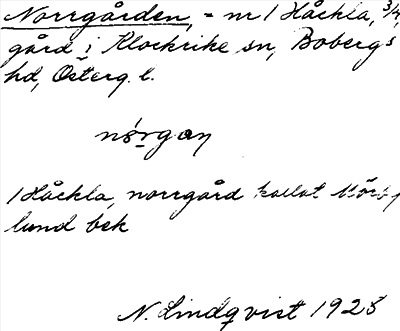 Norrgården, = nr 1 Håckla, 3/4,
gård i Klockrike sn, Bobergs
hd, Österg. l.
nórgan
1 Håckla, norrgård kallat
lund bsk
N. Lindqvist 1925